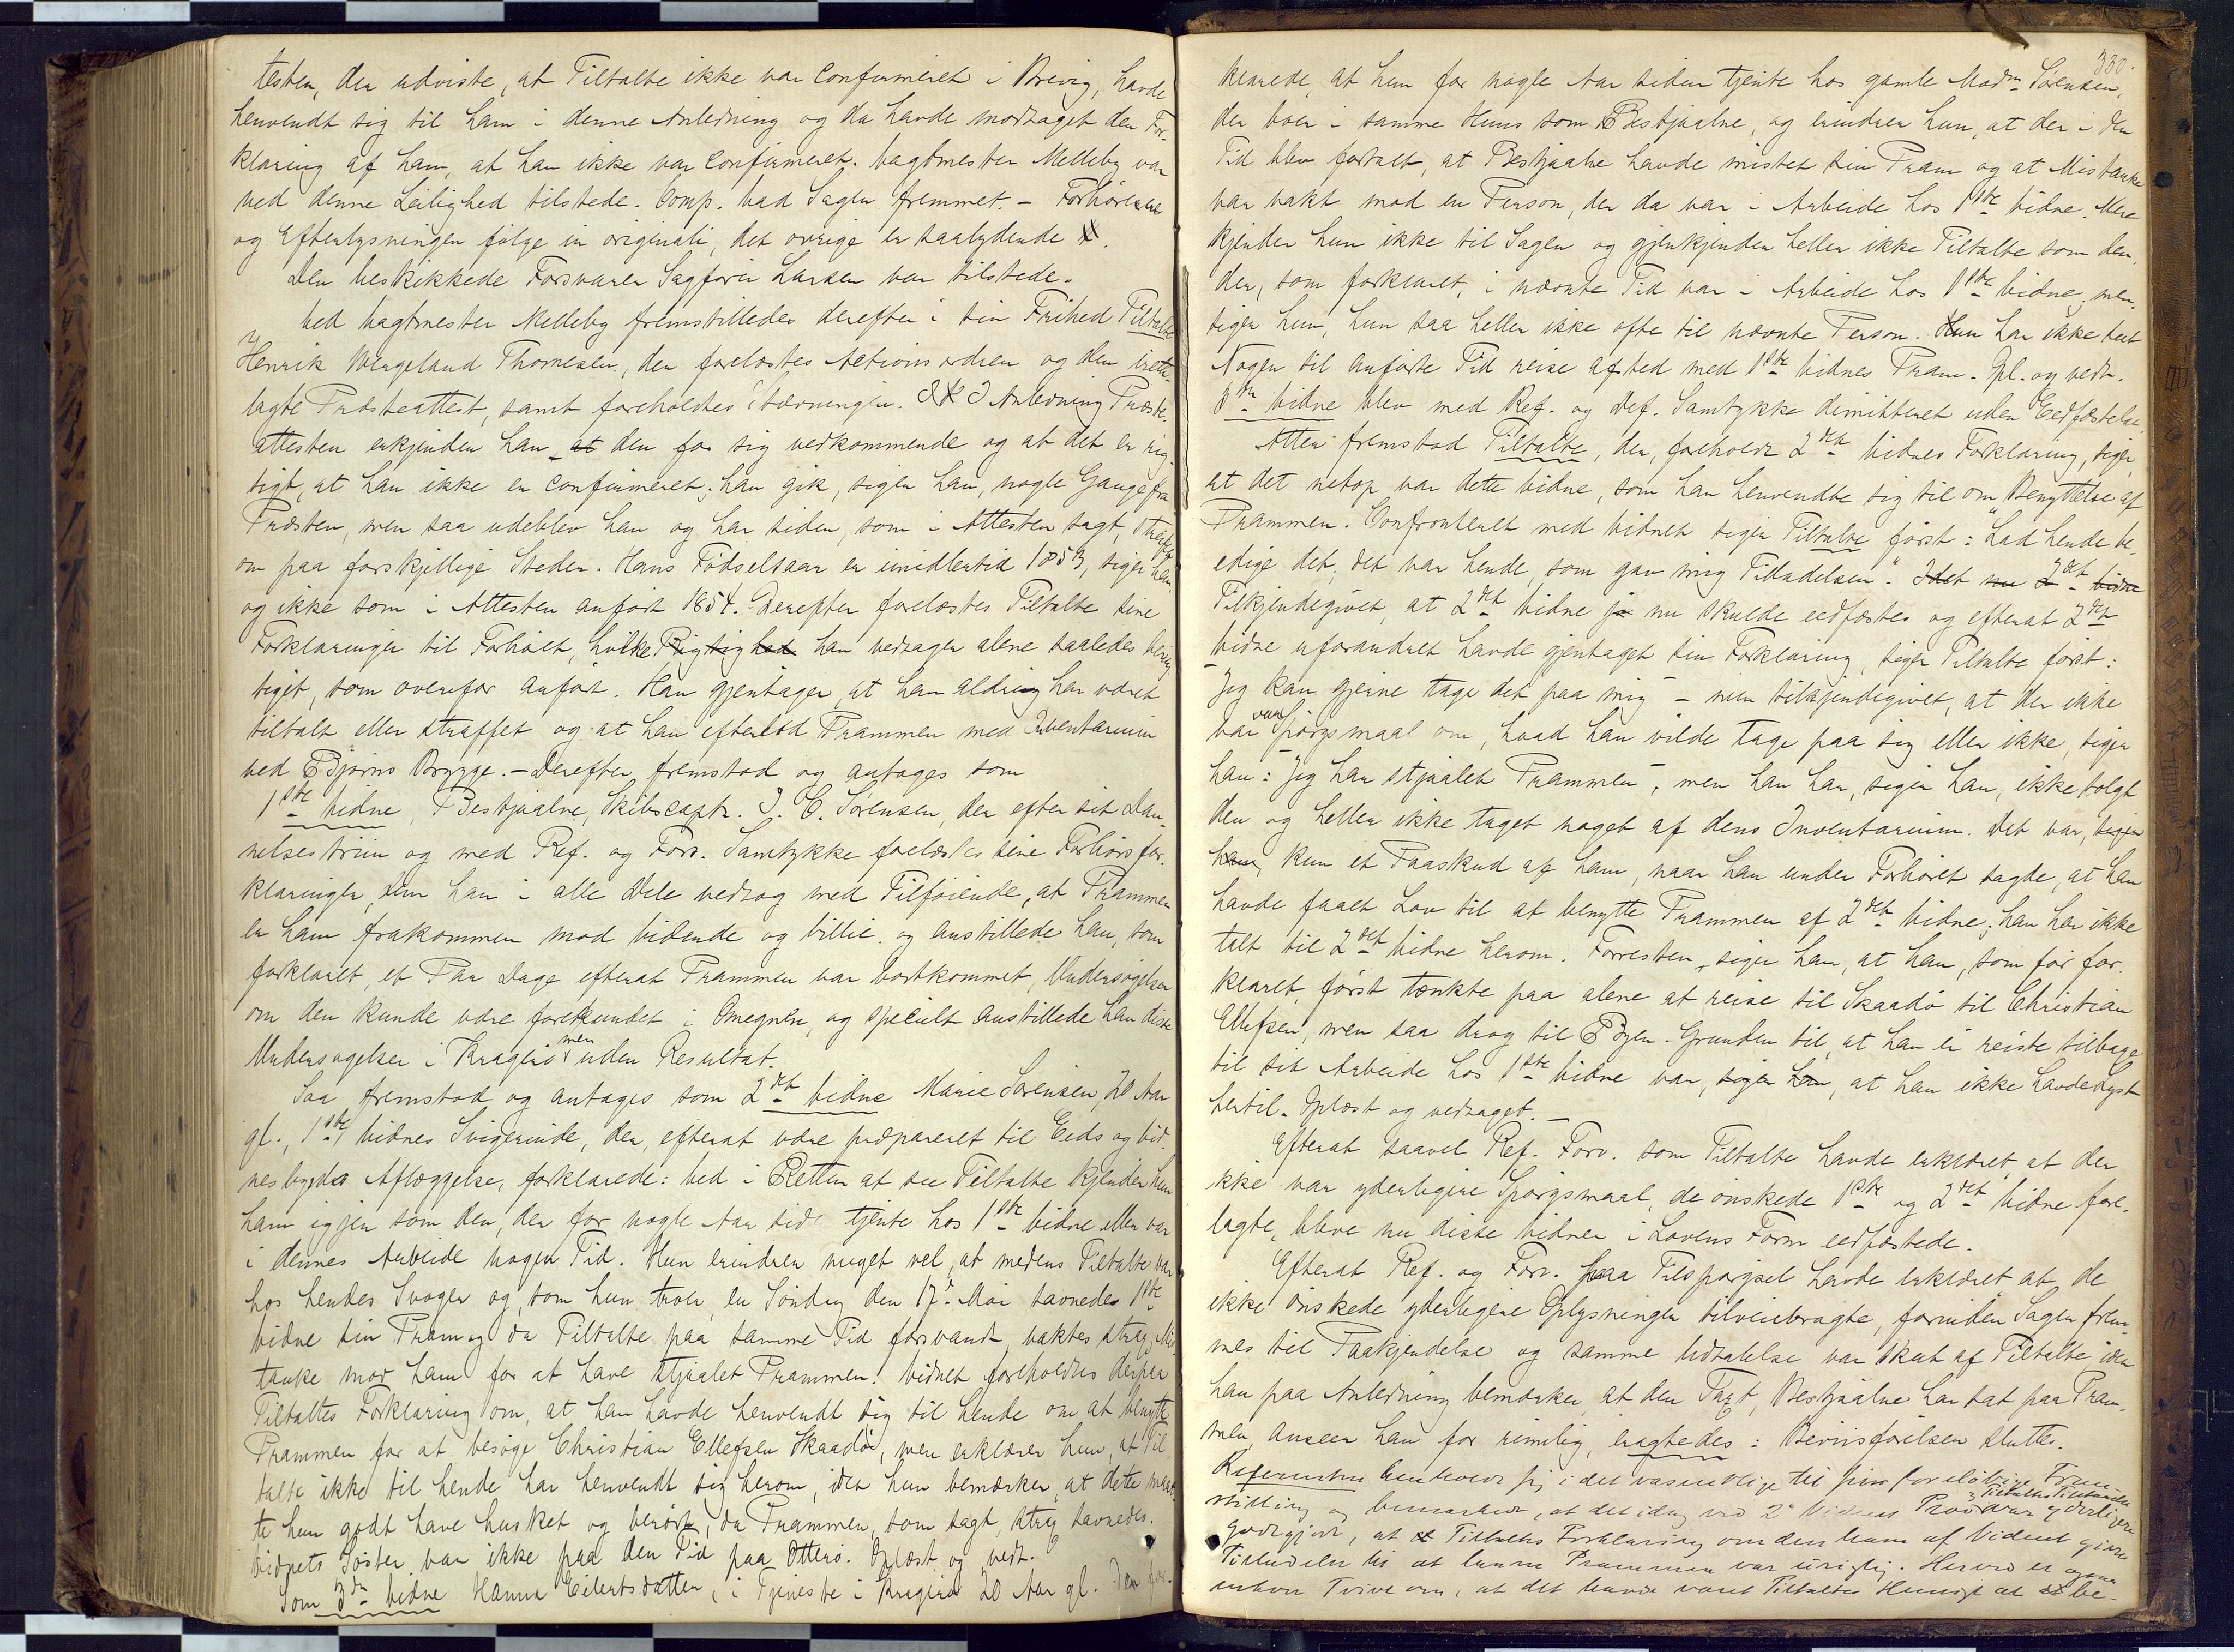 testen, der udviste, at Tiltalte ikke var Confirmeret i Brevig, havde
henvendt sig til ham i denne Anledning og da havde modtaget den For-
klaring af ham, at han ikke var Confirmeret. Vagtmester Melleby var
ved denne Leilighed tilstede. Comp. bad Sagen fremmet. – Forhørerne
og Efterlysningen følge in originali, det øvrige er saalydende
Den beskikkede Forsvarer Sagfører Larsen var tilstede.
Ved Vagtmester Melleby fremstilledes derefter i sin Frihed Tiltalte
Henrik Wergeland Thomesen, der forelæstes Actionsordren og den irette-
lagte Præsteattest, samt foreholdtes Stevningen. I Anledning Præste-
attesten erkjender han at den for sig vedkommende og at det er rig-
tigt, at han ikke er Confirmeret; han gik, siger han, nogle Gange fra
Præsten, men saa udeblev han og har siden, som i Attesten sagt, streifet
om paa forskjellige Steder. Hans Fødselsaar er imidlertid 1853, siger han,
og ikke som i Attesten anført 1854. Derefter forelæstes Tiltalte sine
Forklaringer til Forhøret, hvilke Rigtighed han vedtager alene saaledes berig-
tiget, som ovenfor anført. Han gjentager, at han aldrig har været
tiltalt eller straffet og at han efterlod Prammen med Inventarium
ved Bjørns Brygge. – Derefter fremstod og antoges som
1ste Vidne, Bestjaalne, Skibscapt. J. C. Sørensen, der efter sit Dan-
nelsestrin og med Ref. og Forv. Samtykke forelæstes sine Forhørsfor-
klaringer, dem han i alle Dele vedtog med Tilføiende, at Prammen
er ham frakommen mod Vidende og Villie. og anstillede han, som
forklaret, et Par Dage efterat Prammen var bortkommet, Undersøgelser
om den kunde være forekundet i Omegnen, og specielt anstillede han disse
Undersøgelser i Kragerø men uden Resultat.
Saa fremstod og antoges som 2det Vidne Marie Sørensen, 20 Aar
gl., 1ste Vidnes Svigerinde, der, efterat være præpareret til Eeds og Vid-
nesbyrds Aflæggelse, forklarede: Ved i Retten at see Tiltalte kjender hun
ham igjen som den, der for nogle Aar sid. tjente hos 1ste Vidne eller var
i dennes Arbeide nogen Tid. Hun erindrer meget vel, at medens Tiltalte var
hos hendes Svoger og, som hun troer, en Søndag den 17de Mai savnedes 1ste
Vidne sin Pram og da Tiltalte paa samme Tid forsvandt, vaktes strax Mis-
tanke mod ham for at have stjaalet Prammen. Vidnet foreholdtes derpaa
Tiltaltes Forklaring om, at han havde henvendt sig til hende om at benytte
Prammen for at besøge Christian Ellefsen Skaadø, men erklærer hun, at Til-
talte ikke til hende har henvendt sig herom, idet hun bemærker, at dette maat-
te hun godt have husket og berørt, da Prammen, som sagt, strax savnedes.
Vidnets Søster var ikke paa den Tid paa Otterø. Oplæst og vedt.
Som 3die Vidne Hanna Eilertsdatter, i Tjeneste i Kragerø 20 Aar gl. Den for-
330.
klarede, at hun for nogle Aar siden tjente hos gamle Madm Sørensen,
der boer i samme Huus som Bestjaalne, og erindrer hun, at der i den
Tid blev fortalt, at Bestjaalne havde mistet sin Pram og at Mistanke
var vakt mod en Person, der da var i Arbeide hos 1ste Vidne. Mere
kjender hun ikke til Sagen og gjenkjender heller ikke Tiltalte som den,
der, som forklaret, i nævnte Tid var i Arbeide hos 1ste Vidne, men
siger hun, hun saa heller ikke ofte til nævnte Person. Hun har ikke seet
Nogen til anførte Tid reise afsted med 1ste Vidnes Pram. Opl. og vedt.
3die Vidne blev med Ref. og Def. Samtykke dimitteret uden Eedfæstelse.
Atter fremstod Tiltalte, der, foreholdt 2det Vidnes Forklaring, siger,
at det netop var dette Vidne, som han henvendte sig til om Benyttelse af
Prammen. Confronteret med Vidnet siger Tiltalte først: „Lad hende be-
edige det, det var hende, som gav mig Tilladelsen“. Idet nu 2det Vidne
Tilkjendegivet, at 2det Vidne nu skulde eedfæstes og efterat 2det
Vidne uforandret havde gjentaget sin Forklaring, siger Tiltalte først:
„Jeg kan gjerne tage det paa mig“ – men tilkjendegivet, at der ikke
var var Spørgsmaal om, hvad han vilde tage paa sig eller ikke, siger
han: „Jeg har stjaalet Prammen“, men han har, siger han, ikke solgt
den og heller ikke taget noget af dens Inventarium. Det var, siger
han, kun et Paaskud af ham, naar han under Forhøret sagde, at han
havde faaet Lov til at benytte Prammen af 2det Vidne; han har ikke
talt til 2det Vidne herom. Forresten, siger han, at han, som før for-
klaret, først tænkte paa alene at reise til Skaadø til Christian
Ellefsen, men saa drog til Byen. Grunden til, at han ei reiste tilbage
til sit Arbeide hos 1ste Vidne var, siger han, at han ikke havde Lyst
hertil. Oplæst og vedtaget. –
Efterat saavel Ref. Forv. som Tiltalte havde erklæret at der
ikke var yderligere Spørgsmaal, de ønskede 1ste og 2det Vidne fore-
lagte, bleve nu disse Vidner i Lovens Form eedfæstede.
Efterat Ref. og Forv. paa Tilspørgsel havde erklæret at de
ikke ønskede yderligere Oplysninger tilveiebragte, forinden Sagen frem-
mes til Paakjendelse og samme Udtalelse var skeet af Tiltalte, idet
han paa Anledning bemærker at den Taxt, Bestjaalne har sat paa Pram-
men, anseer han for rimelig, eragtedes: Beviisførelsen sluttet.
Referenten henholdt sig i det væsentlige til sin foreløbige Frem-
stilling og bemærkede, at det idag ved 2det Vidnes Prov & Tiltaltes Tilstaaelse var yderligere
godtgjort, at Tiltaltes Forklaring om den ham af Vidnet givne
Tilladelse til at laane Prammen var urigtig. Herved er ogsaa
enhver Tvivl om, at det havde været Tiltaltes Hensigt at be-